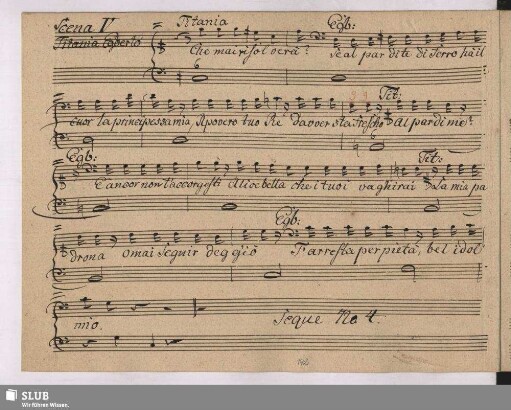 Scena V Titania Egb:
Titania Egberto Che mai risolverà? Se al par di te di ferro hà il
Tit:
cuor la principessa mia, Il povero tuo Rè davver sta fresco Al par di me?
Egb: Tit:
E ancor non t'accorgesti Il lisbella che i tuoi vaghi rai La mia pa
Egb:
drona omai seguir deggiò T'arresta per pietà, bel idol
mio. Segue No 4.
SLUB
Wir führen Wissen.